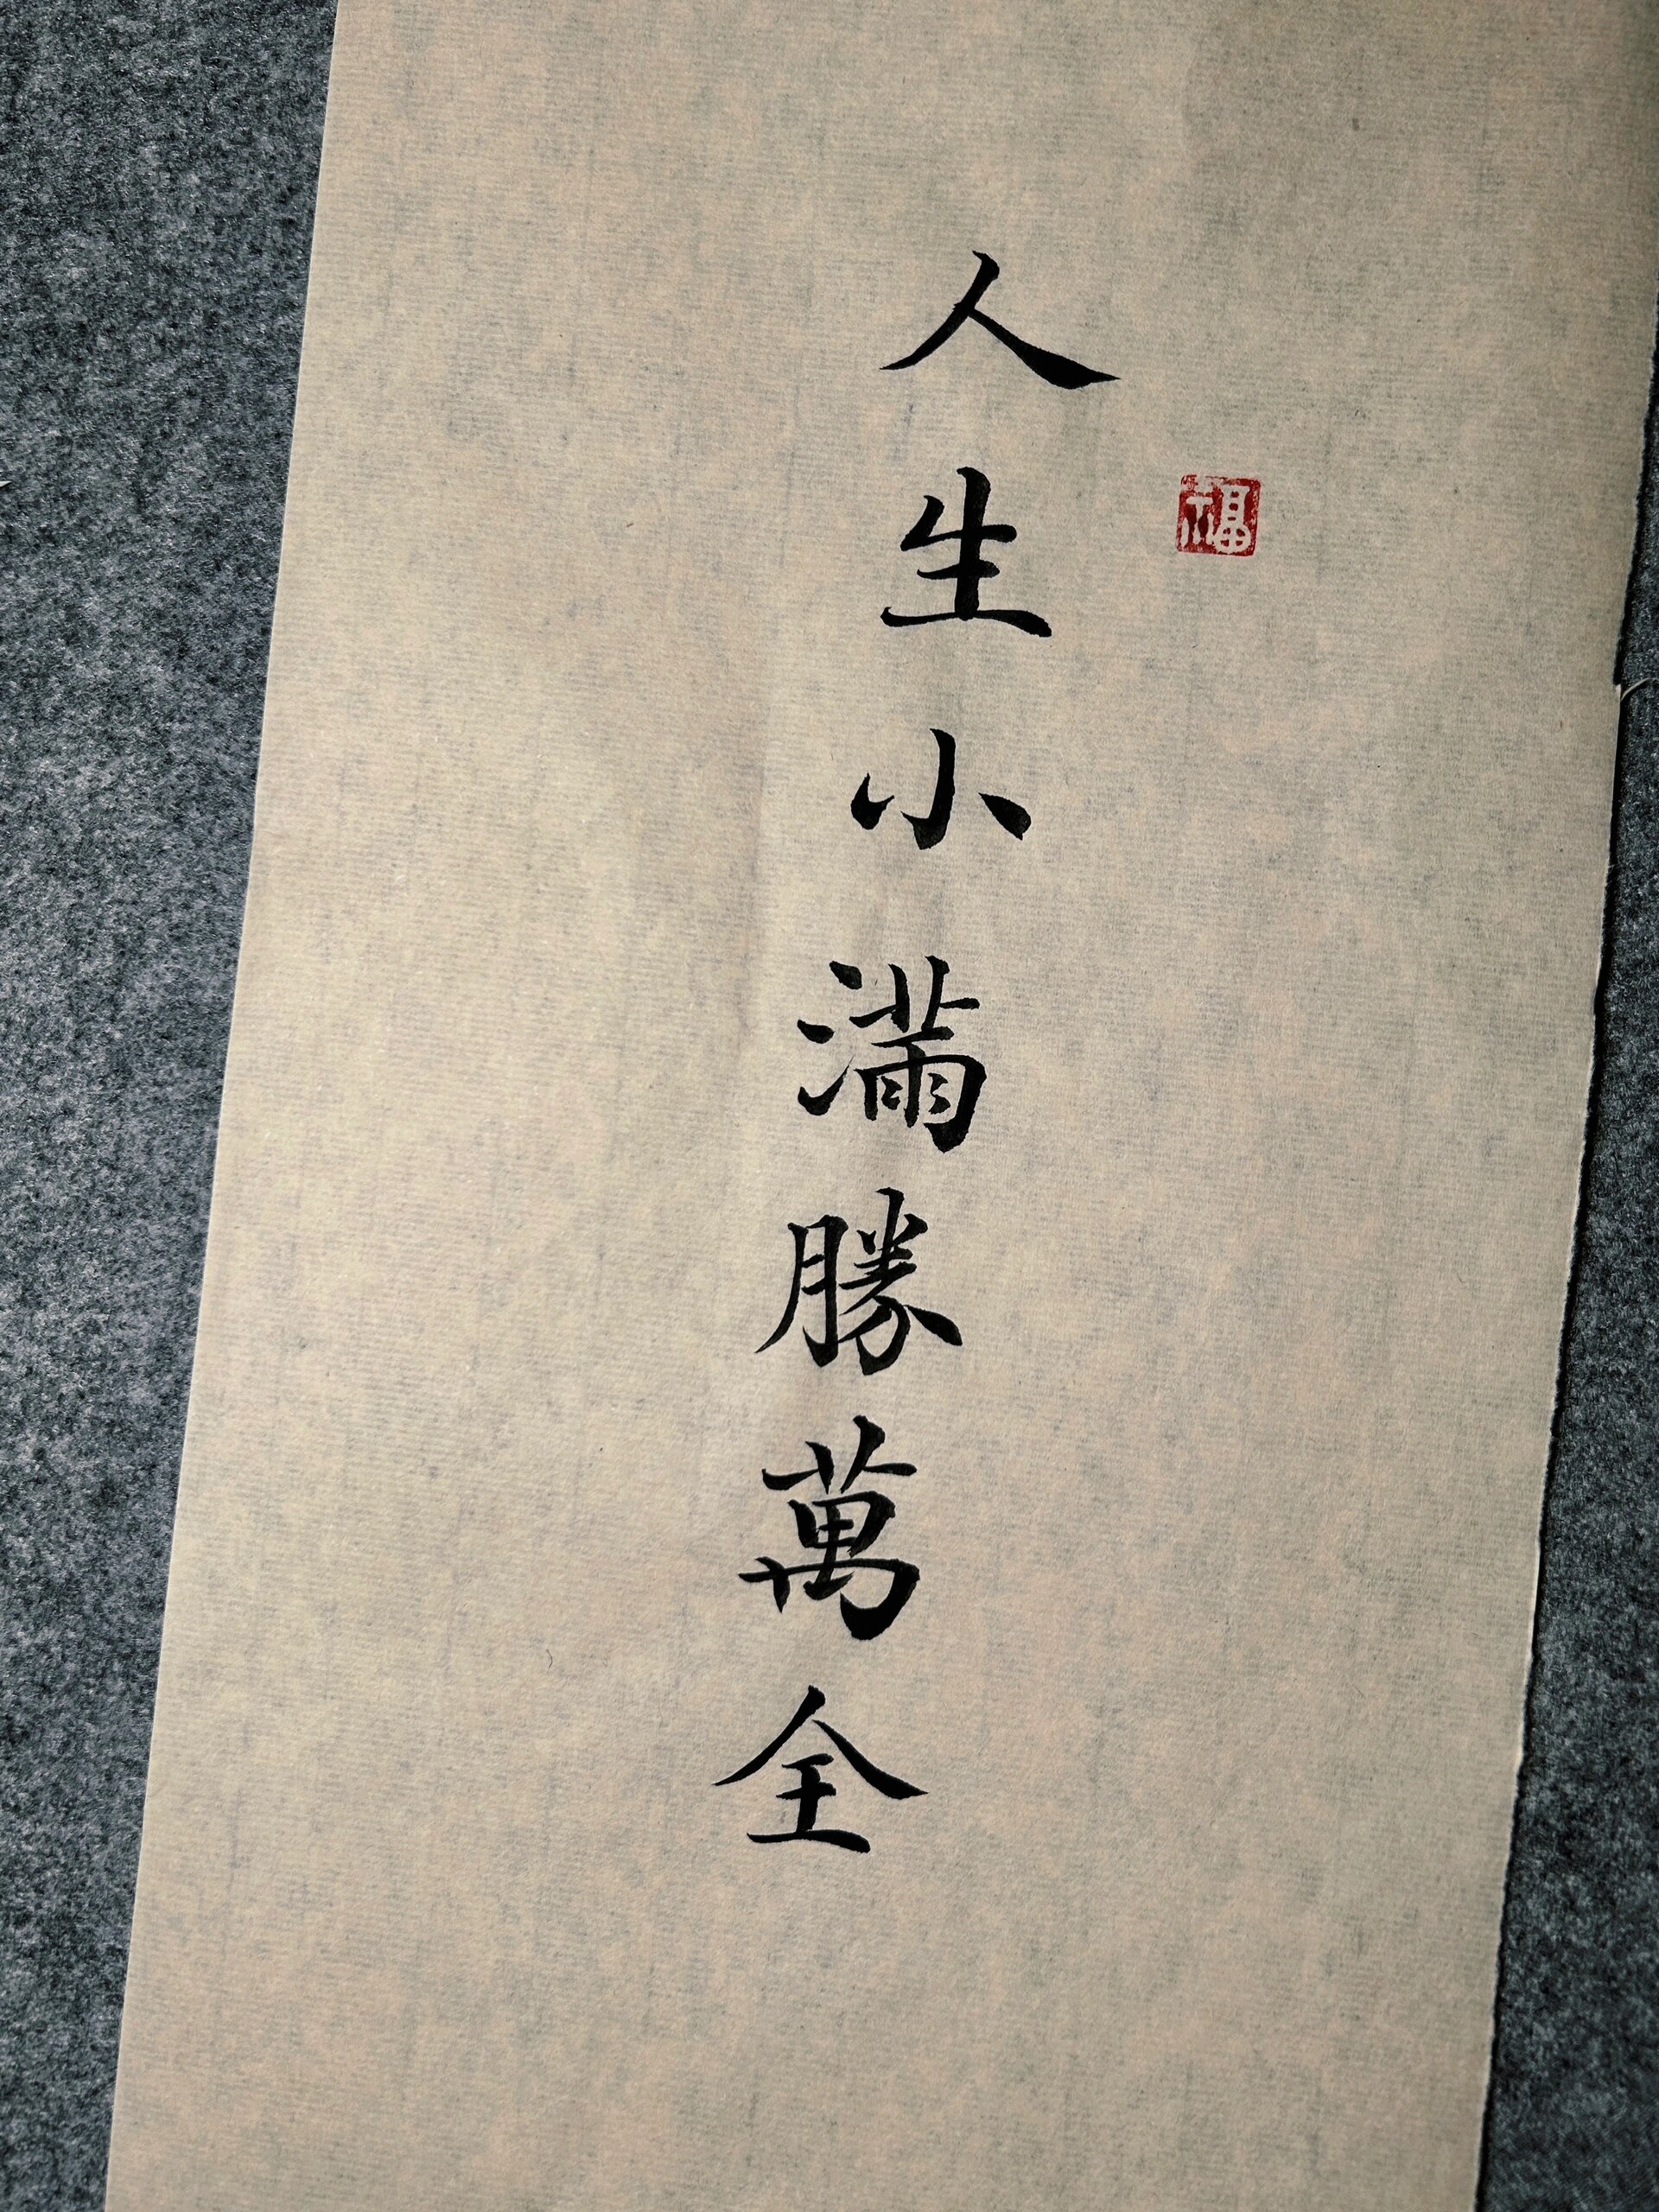 人生小滿勝萬全
福